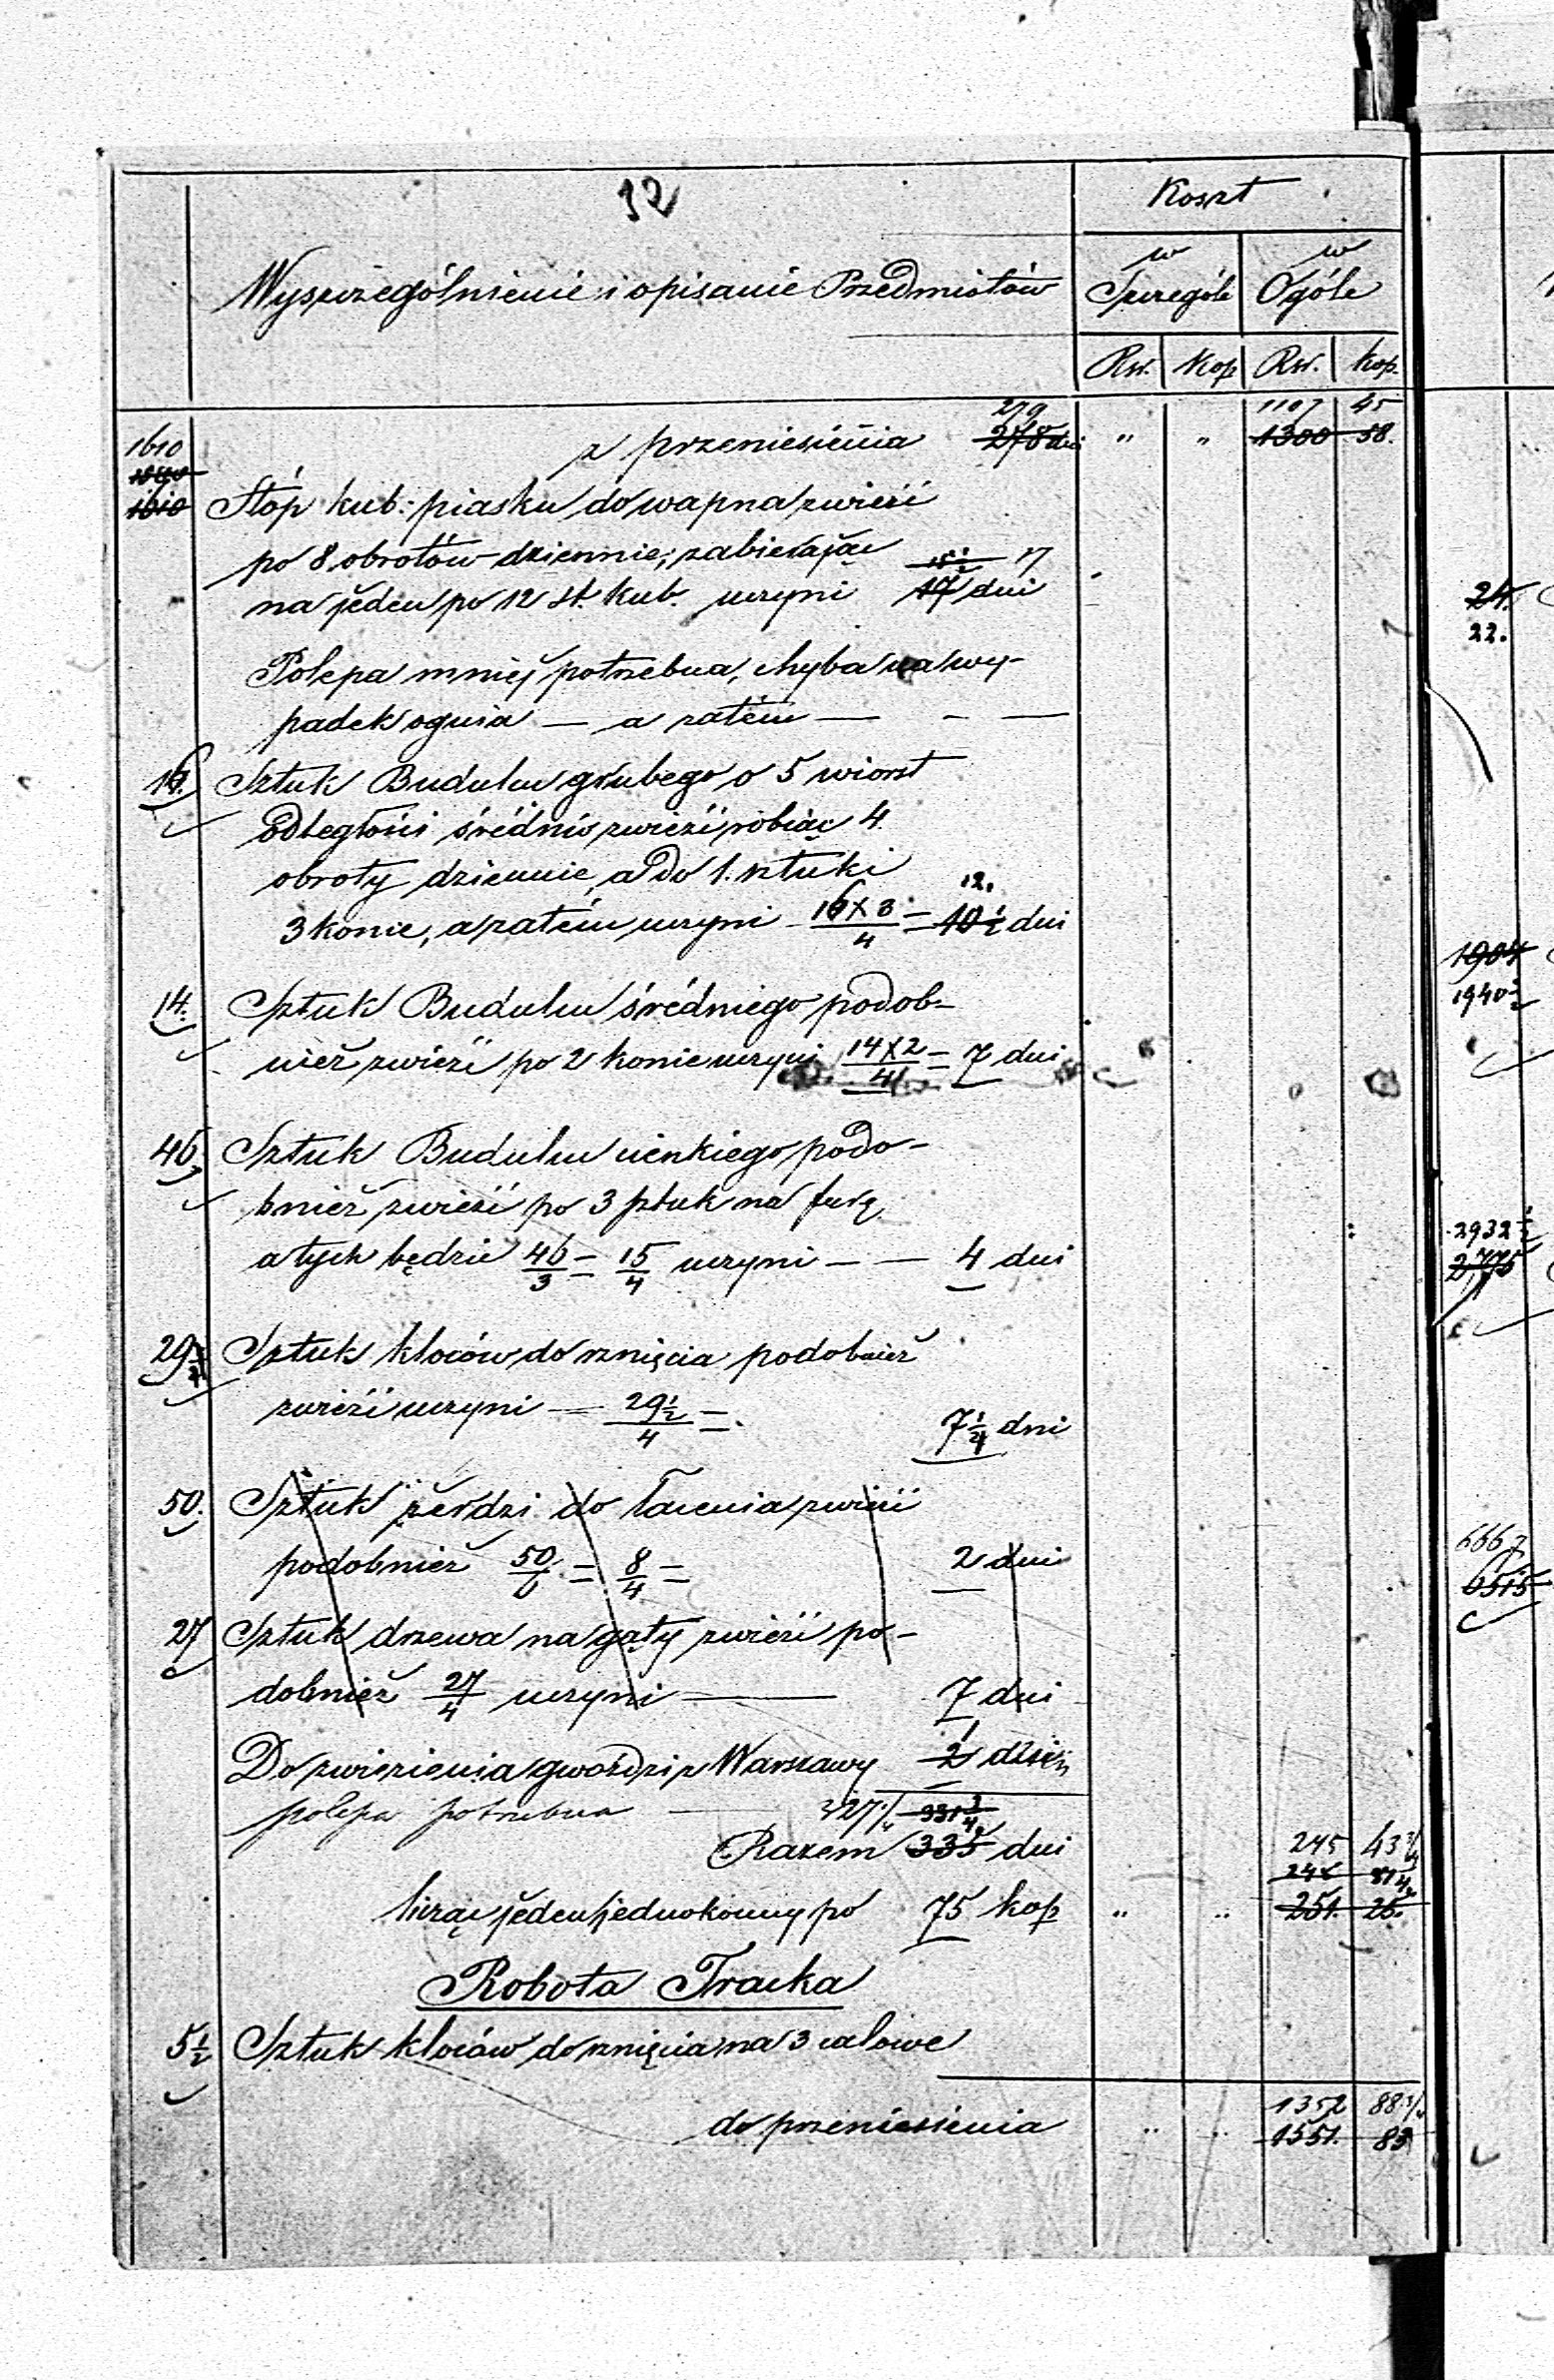 12
Koszt
w w
Wyszczególnienie i opisanie Przedmiotów Szczególe Ogóle
Rsr. Kop Rsr. Kop.
279 1107 45
1610 z przeniesienia 278 dni " " 1300 58.
1610 Stóp kub: piasku do wapna zwieźć
po 8 obrotów dziennie, zabierając 15 1/2 17
na jeden po 12 st. kub. uczyni 17 dni
Polepa mniej potrzebna, chyba na wy-
padek ognia — a zatém — - —
16. Sztuk Budulcu grubego o 5 wiorst
odległości śrédnio zwieźć robiąc 4.
obroty dziennie, a do 1. sztuki
12.
3 konie, a zatém uczyni 16 X 3/4 = 10 1/2 dni
14. Sztuk Budulcu śrédniego podob-
nież zwieźć po 2 konie uczyni 14 X 2/4 = 7 dni
46 Sztuk Budulcu cienkiego podo-
bnież zwieźć po 3 sztuk na furę
a tych będzie 46/3 = 15/4 uczyni — — 4 dni
29 1/2 Sztuk kloców do rznięcia podobnież
zwieźć uczyni — 29 1/2/4 = 7 1/4 dni
50. Sztuk żerdzi do łacenia zwieźć
podobnież 50/6 = 8/4 = 2 dni
27 Sztuk drzewa na gąty zwieźć po-
dobnież 27/4 uczyni — 7 dni
1
Do zwiezienia gwoździ z Warszawy 2 dzień
polepa potrzebna — 327 1/4 331 3/4
Razem 335 dni 245 43 3/4
248 81 1/4
licząc jeden jednokonny po 75 kop " " 251. 25.
Robota Tracka
5 1/2 Sztuk kloców do rznięcia na 3 calowe
1352 88 3/4
do przeniesienia " " 1551. 83
24.
22.
1904
1940 1/2
2932 1/2
2775
6667
6515